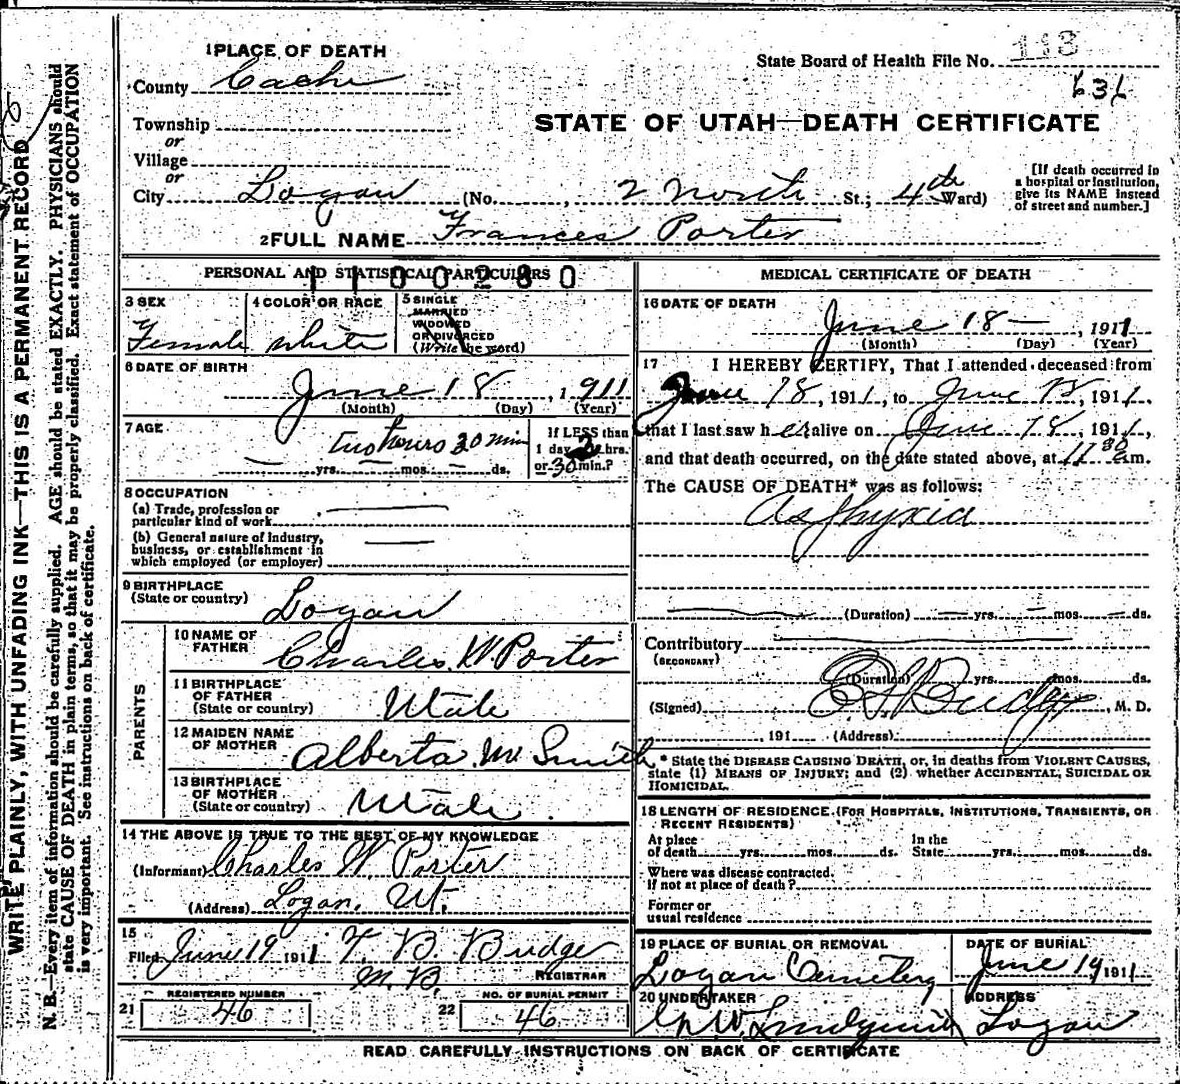 1 PLACE OF DEATH
County Cache
Township
or
Village
or
City Logan (No. , 2 North St.; 4th Ward)
State Board of Health File No. 113
636
STATE OF UTAH—DEATH CERTIFICATE
[If death occurred in
a hospital or institution,
give its NAME instead
of street and number.]
2 FULL NAME Frances Porter
PERSONAL AND STATISTICAL PARTICULARS
1100280
3 SEX
Female
4 COLOR OR RACE
white
5 SINGLE
MARRIED
WIDOWED
OR DIVORCED
(Write the word)
6 DATE OF BIRTH
June 18, 1911
(Month) (Day) (Year)
7 AGE
Two hours 30 min
— yrs. — mos. — ds.
If LESS than
1 day 2 hrs.
or 30 min.?
8 OCCUPATION
(a) Trade, profession or
particular kind of work
(b) General nature of industry,
business, or establishment in
which employed (or employer)
9 BIRTHPLACE
(State or country) Logan
PARENTS
10 NAME OF
FATHER Charles W. Porter
11 BIRTHPLACE
OF FATHER
(State or country) Utah
12 MAIDEN NAME
OF MOTHER Alberta M. Smith
13 BIRTHPLACE
OF MOTHER
(State or country) Utah.
14 THE ABOVE IS TRUE TO THE BEST OF MY KNOWLEDGE
(Informant) Charles W. Porter
(Address) Logan, Ut.
15
Filed June 19 1911 T. B. Budge
M.D. REGISTRAR
REGISTERED NUMBER
21 46
NO. OF BURIAL PERMIT
22 46
MEDICAL CERTIFICATE OF DEATH
16 DATE OF DEATH
June 18 —, 1911
(Month) (Day) (Year)
17 I HEREBY CERTIFY, That I attended deceased from
June 18, 1911, to June 18, 1911,
that I last saw her alive on June 18, 1911,
and that death occurred, on the date stated above, at 11 30 am.
The CAUSE OF DEATH* was as follows:
Asphyxia
(Duration) — yrs. — mos. — ds.
Contributory
(SECONDARY)
(Duration) yrs. mos. ds.
(Signed) Budge, M. D.
, 191 (Address)
* State the DISEASE CAUSING DEATH, or, in deaths from VIOLENT CAUSES,
state (1) MEANS OF INJURY; and (2) whether ACCIDENTAL, SUICIDAL OR
HOMICIDAL.
18 LENGTH OF RESIDENCE (FOR HOSPITALS, INSTITUTIONS, TRANSIENTS, OR
RECENT RESIDENTS)
At place
of death yrs. mos. ds.
In the
State yrs. mos. ds.
Where was disease contracted,
if not at place of death?
Former or
usual residence
19 PLACE OF BURIAL OR REMOVAL
Logan Cemetery
DATE OF BURIAL
June 19 1911
20 UNDERTAKER
ADDRESS
Logan
READ CAREFULLY INSTRUCTIONS ON BACK OF CERTIFICATE
WRITE PLAINLY, WITH UNFADING INK—THIS IS A PERMANENT RECORD
N. B.—Every item of information should be carefully supplied. AGE should be stated EXACTLY. PHYSICIANS should
state CAUSE OF DEATH in plain terms, so that it may be properly classified. Exact statement of OCCUPATION
is very important. See instructions on back of certificate.